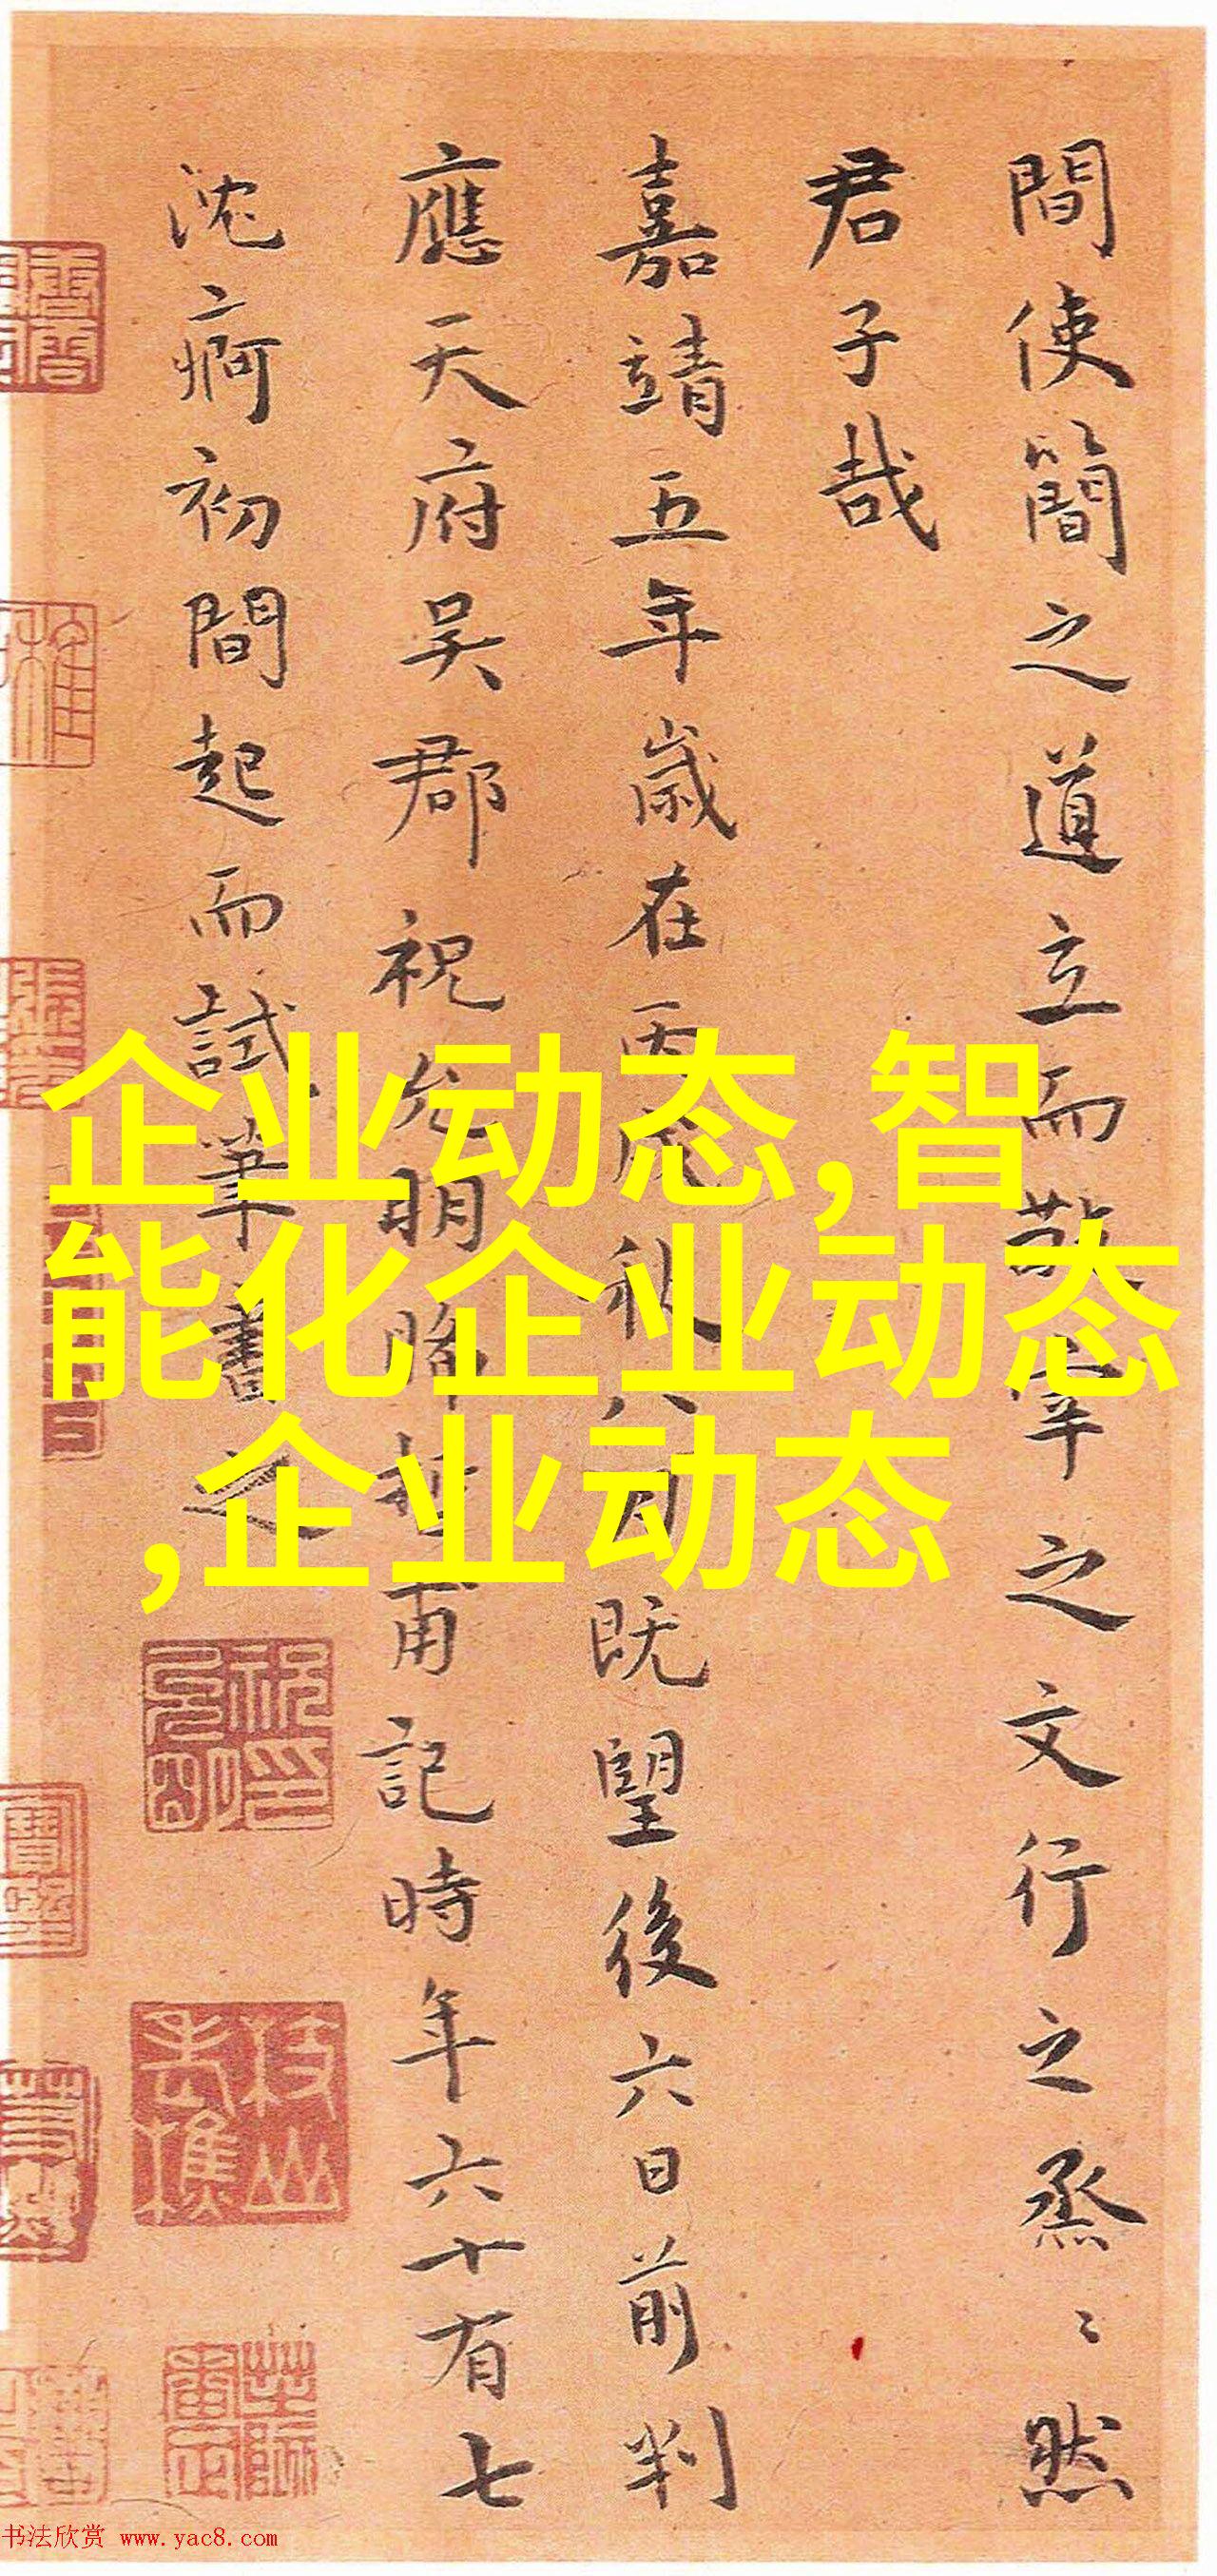 間使簡之道立而敬宰之文行之烝〻然
君子哉
嘉靖五年歲在丙戌秋八月既望後六日前判
應天府吳郡祝允明晞哲甫記時年六十有七
沈痾初間起而試筆書之
企业动态,智
能化企业动态
,企业动态
书法欣赏 www.yac8.com